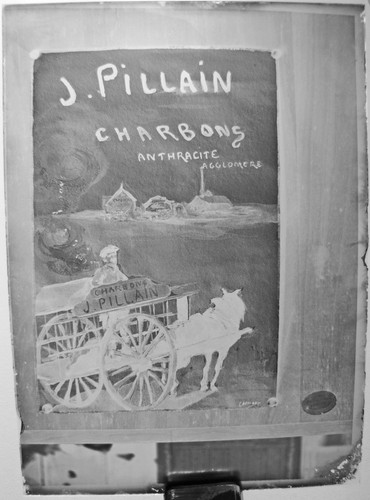 J. PILLAIN
CHARBONS
ANTHRACITE
AGGLOMERE
CHARBONS
J. PILLAIN